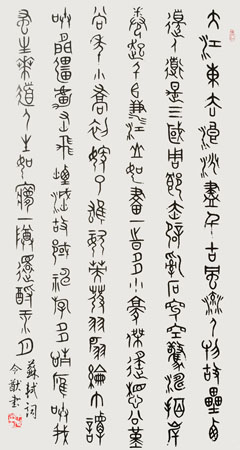 大江東去浪淘盡千古風流人物故壘西
邊人道是三國周郎赤壁亂石穿空驚濤拍岸
卷起千堆雪江山如畫一時多少豪傑遙想公瑾
當年小喬初嫁了雄姿英發羽扇綸巾談
笑間檣櫓灰飛煙滅故國神遊多情應笑我
早生華髮人生如夢一樽還酹江月
蘇軾詞
今猷書